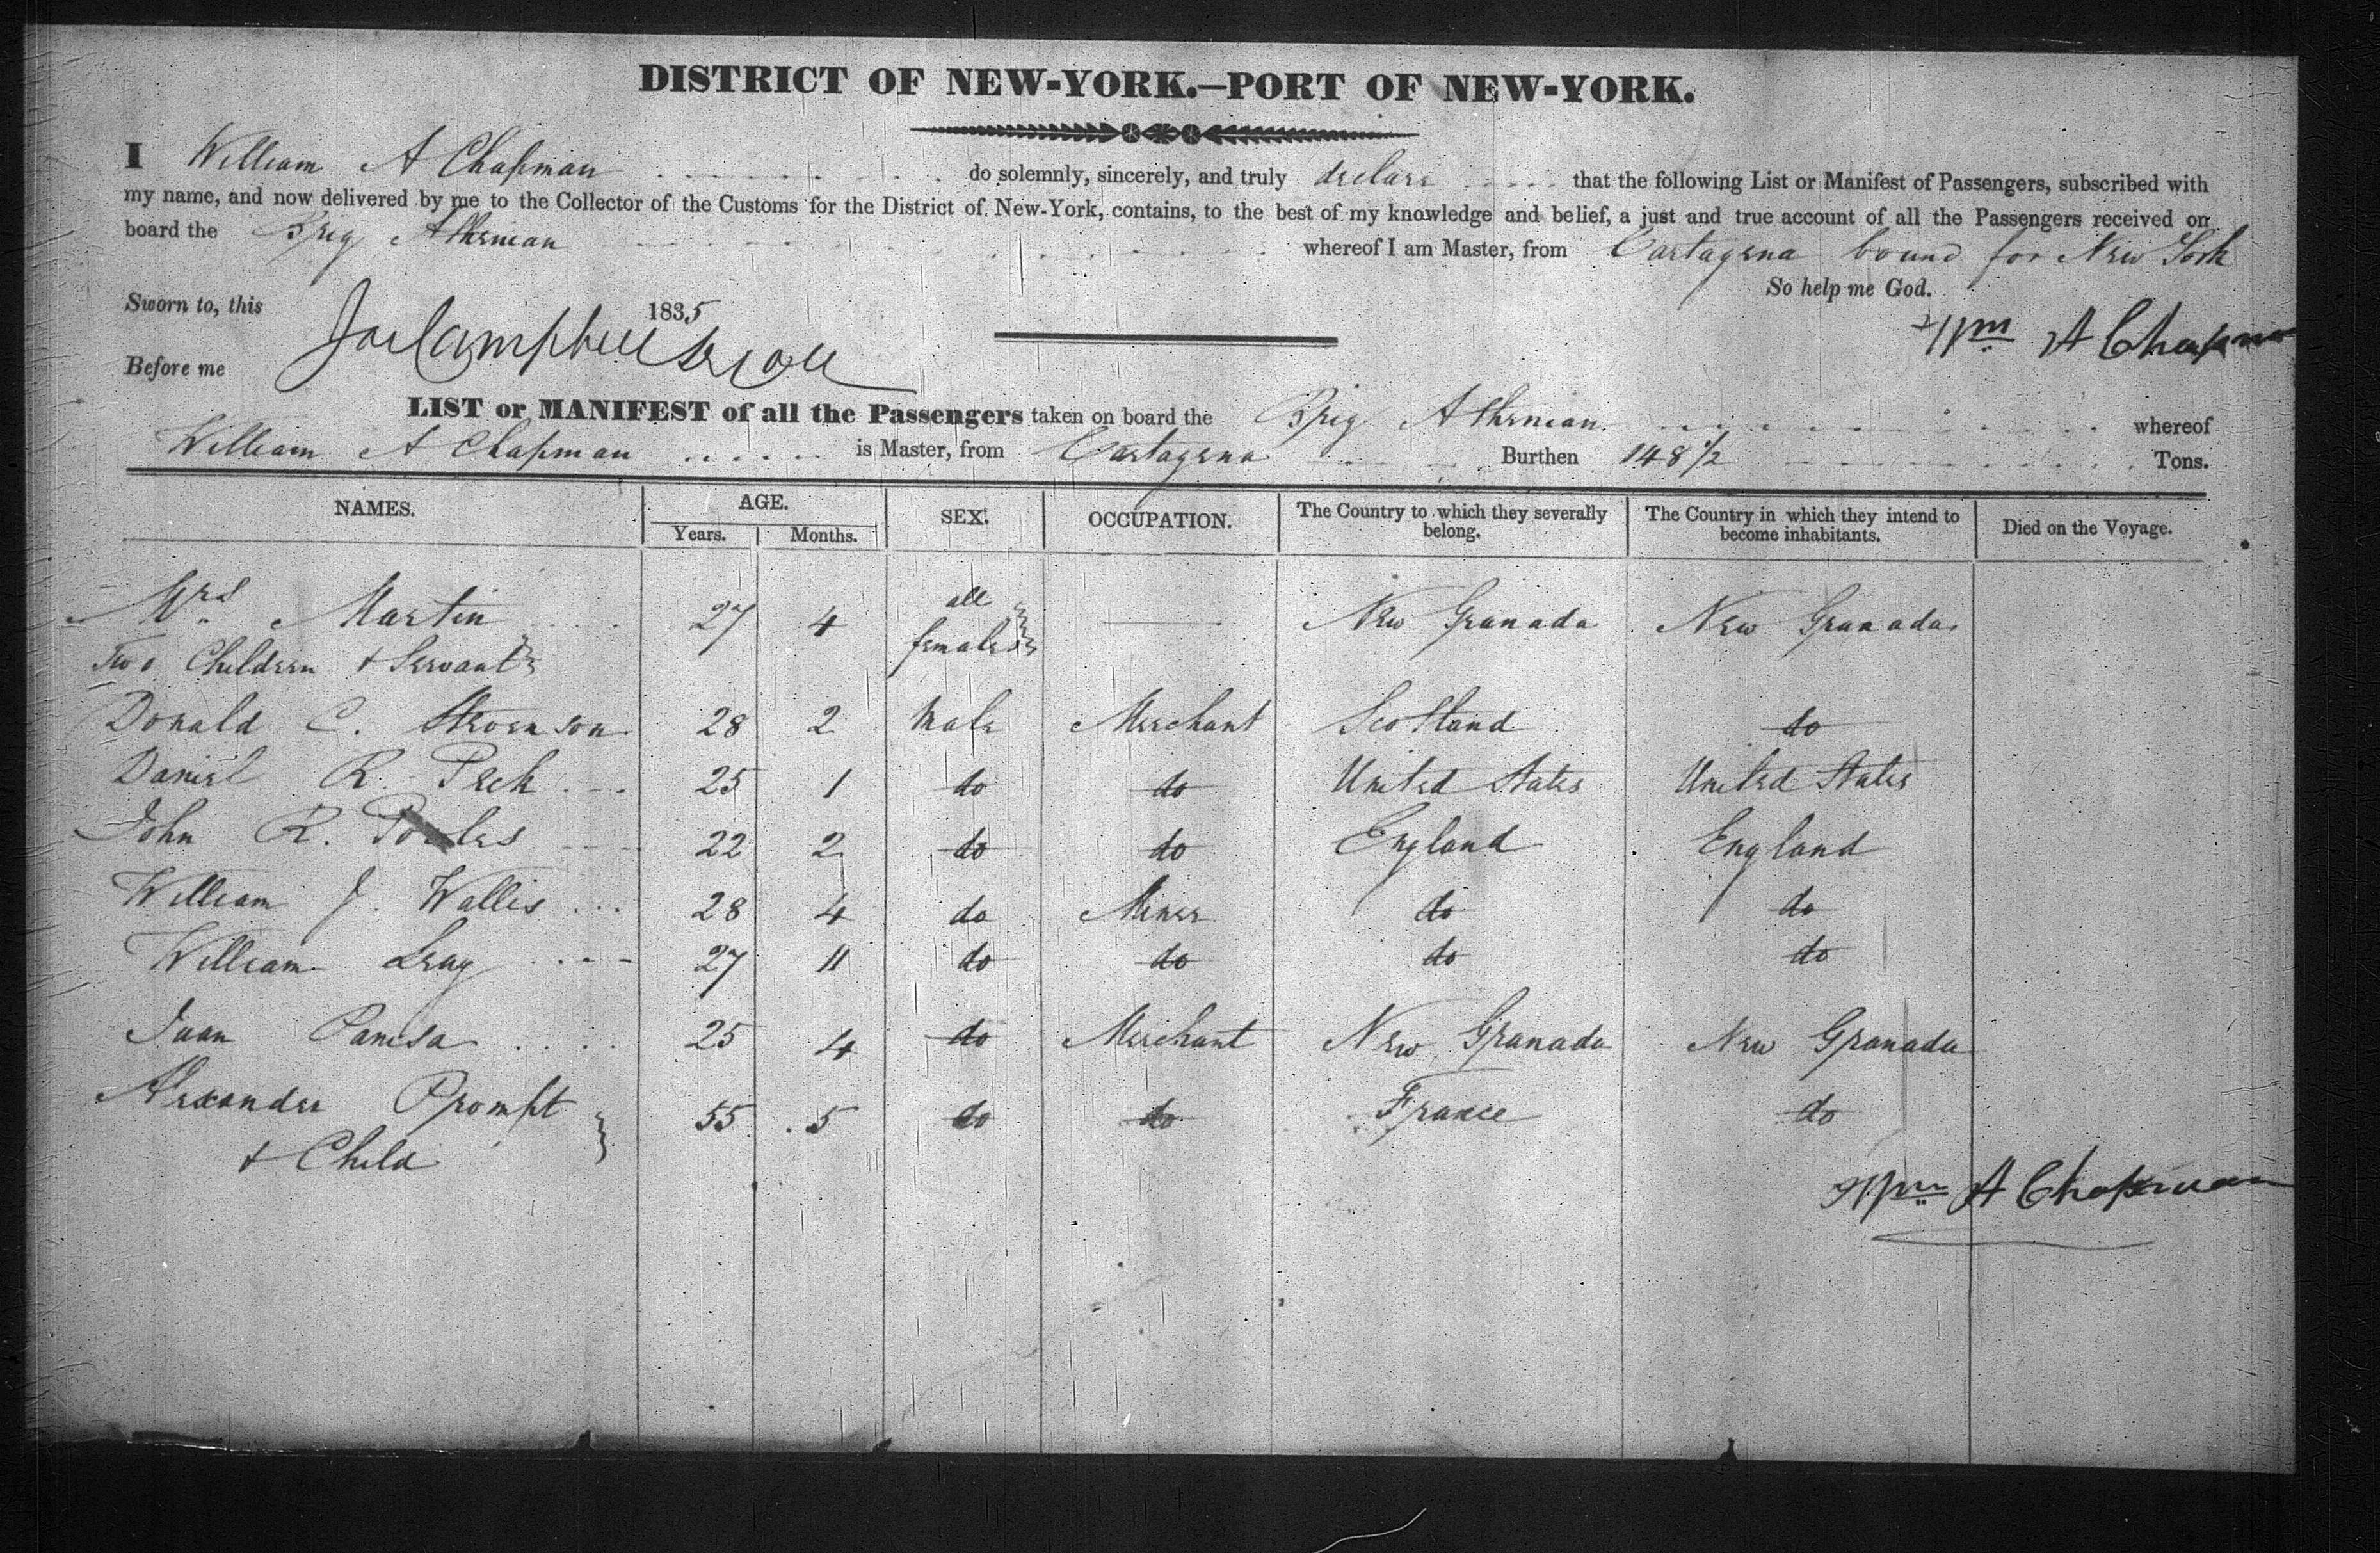 DISTRICT OF NEW-YORK.—PORT OF NEW-YORK.
I William A Chapman do solemnly, sincerely, and truly declare that the following List or Manifest of Passengers, subscribed with
my name, and now delivered by me to the Collector of the Customs for the District of New-York, contains, to the best of my knowledge and belief, a just and true account of all the Passengers received on
board the Brig Athenian whereof I am Master, from Cartagena bound for New York
So help me God.
Sworn to, this 1835
Wm A Chapman
Before me
LIST or MANIFEST of all the Passengers taken on board the Brig Athenian whereof
William A Chapman is Master, from Cartagena Burthen 148 1/2 Tons.
NAMES. AGE. SEX. OCCUPATION. The Country to which they severally belong. The Country in which they intend to become inhabitants. Died on the Voyage.
Years. Months.
Mrs Martin 27 4 all females New Granada New Granada
Two Children + Servant
Donald C. 28 2 Male Merchant Scotland do
Daniel R. Peck 25 1 do do United States United States
John R. 22 2 do do England England
William J. Wallis 28 4 do Miner do do
William Leay 27 11 do do do do
Juan 25 4 do Merchant New Granada New Granada
Alexander Prompt 55 5 do do France do
+ Child
Wm A Chapman